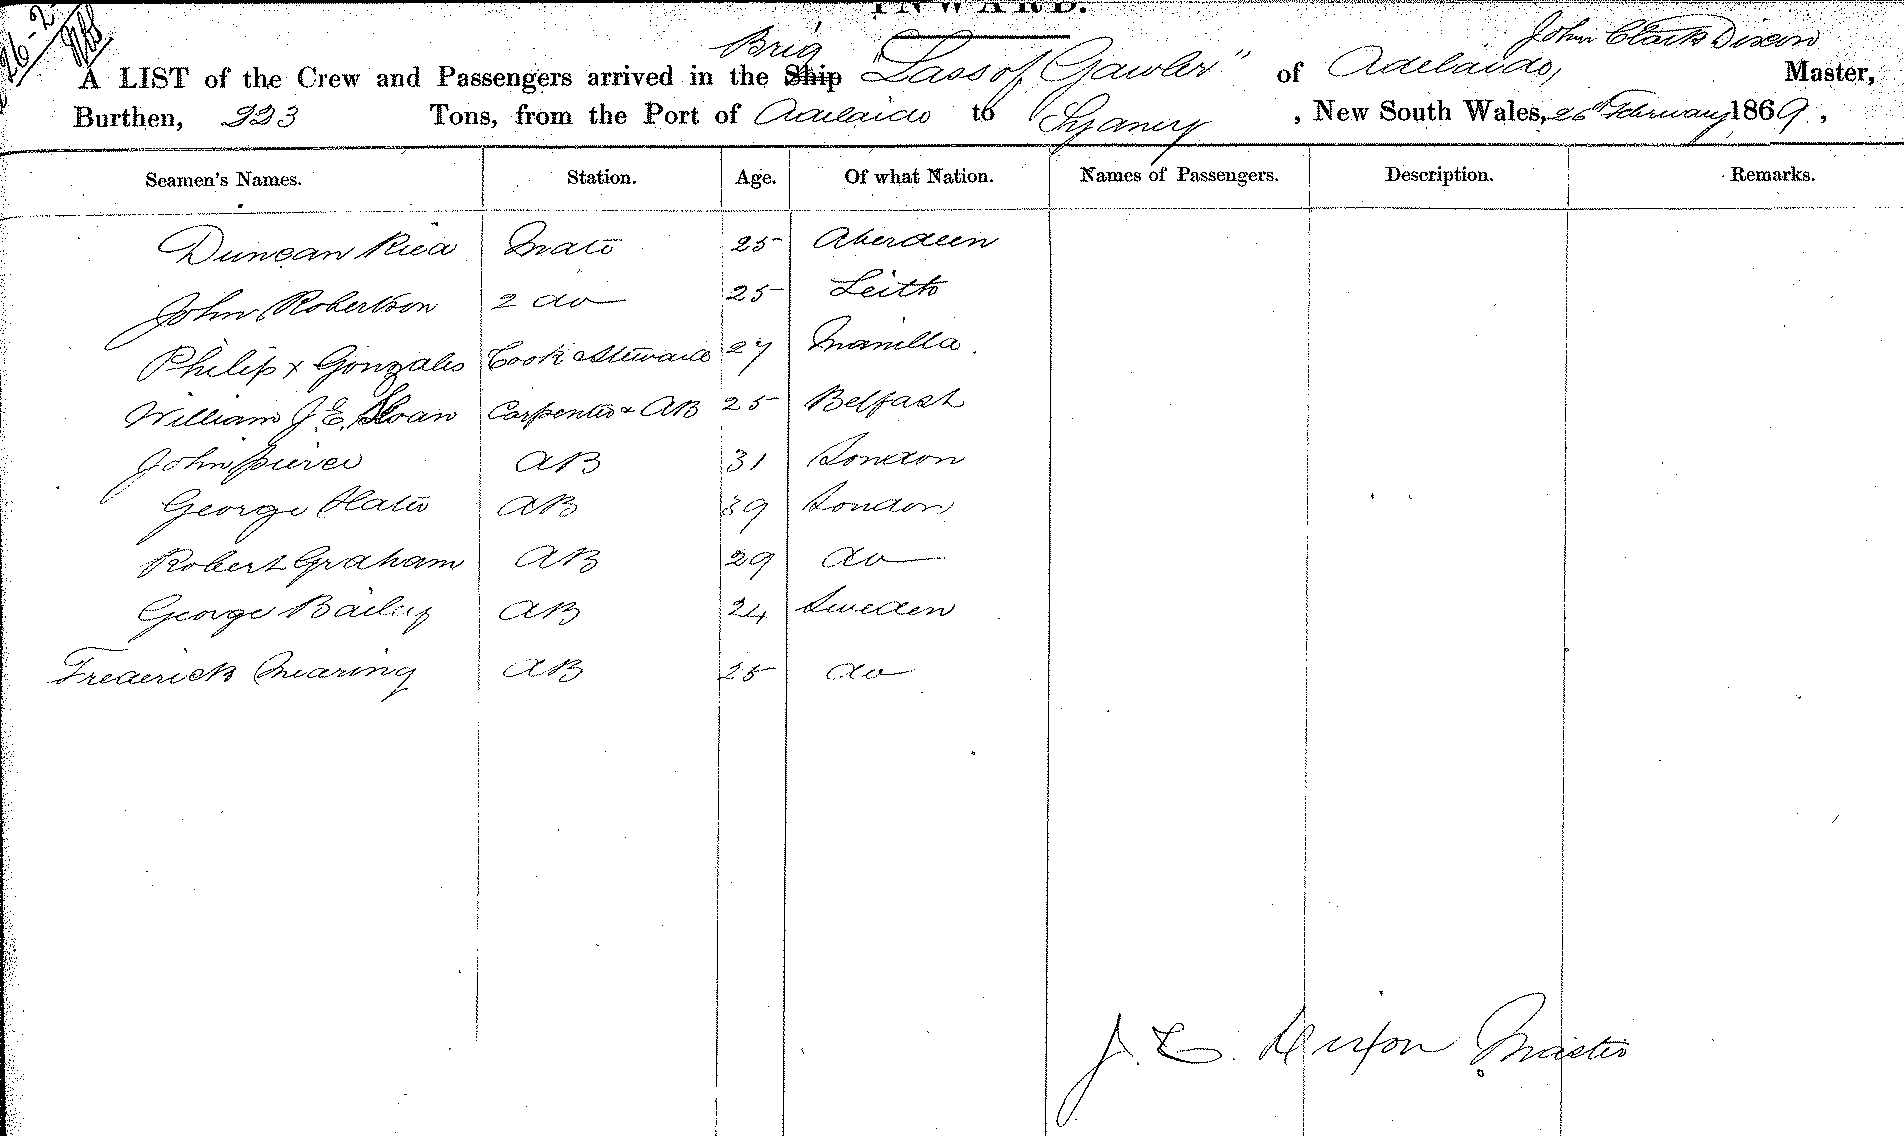 INWARD.
26-2
Brig John Clark Dixon
A LIST of the Crew and Passengers arrived in the Ship "Lass of Gawler" of Adelaide, Master,
Burthen, 223 Tons, from the Port of Adelaide to Sydney, New South Wales, 26th February 1869,
Seamen's Names. Station. Age. Of what Nation. Names of Passengers. Description. Remarks.
Duncan Rica Mate 25 Aberdeen
John Robertson 2 do 25 Leith
Philip x Gonzales Cook & Steward 27 Manilla.
William J. E. Sloan Carpenter & AB 25 Belfast
John Pierce AB 31 London
George Slater AB 39 London
Robert Graham AB 29 do
George Bailey AB 24 Sweden
Frederick Mearing AB 25 do
J. C. Dixon Master